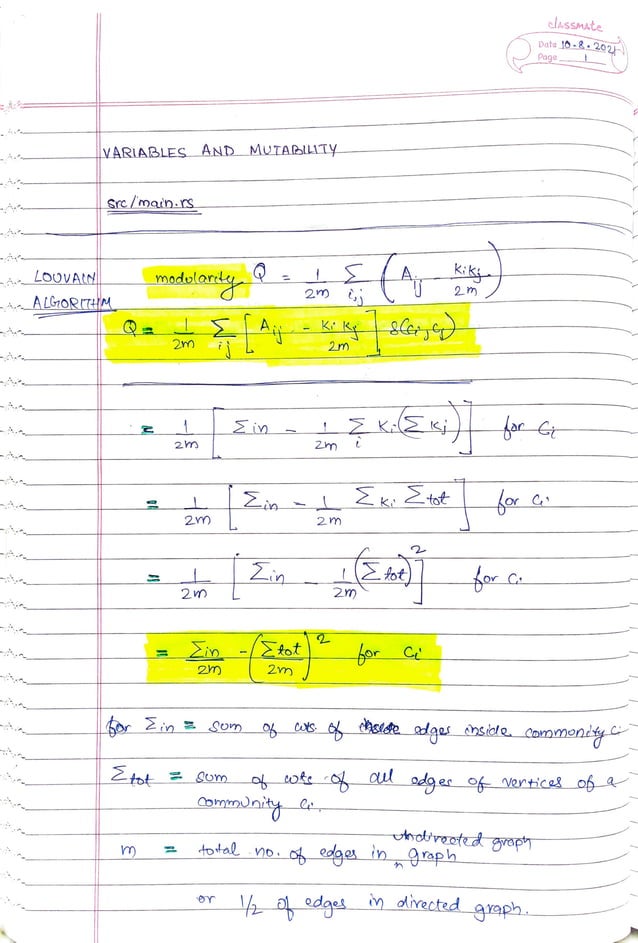 classmate
Date 10-8-2021
Page 1
VARIABLES AND MUTABILITY
src/main.rs
LOUVAIN ALGORITHM
modularity Q = 1/2m Σ i,j ( A ij - Ki Kj / 2m )
Q = 1/2m Σ ij [ A ij - Ki Kj / 2m ] δ(ci, cj)
= 1/2m [ Σ in - 1/2m Σ i Ki ( Σ Kj ) ] for Ci
= 1/2m [ Σ in - 1/2m Σ Ki Σ tot ] for Ci
= 1/2m [ Σ in - 1/2m ( Σ tot )² ] for Ci
= Σ in / 2m - ( Σ tot / 2m )² for Ci
for Σ in = sum of wts. of edges inside community Ci
Σ tot = sum of wts. of all edges of vertices of a
community Ci.
undirected graph
m = total no. of edges in graph
or 1/2 of edges in directed graph.